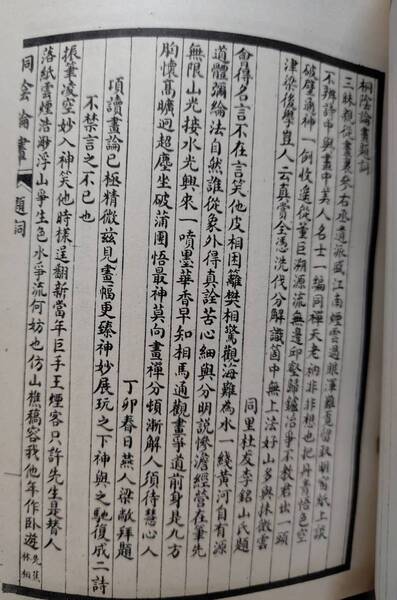 桐陰論畫題詞
三昧親從畫裏參右丞遺派藏江南煙雲過眼渾難覓留取明窗紙上談
不辨詩中與畫中美人名士一編同禪天老衲非非想也把丹青悟色空
破壁通神一劍收進從董巨溯源流無邊邱壑歸鑪冶爭不教君出一頭
津梁後學豈人云真賞全憑洗伐分解識箇中無上法好山多與抹微雲
同里杜友李銘山氏題
會得名言不在言笑他皮相困籬樊相驚觀海難為水一綫黃河自有源
道體彌綸法自然誰從象外得真詮苦心細與分明說慘澹經營在筆先
無限山光接水光興來一噴墨華香早知相馬通觀畫畢道前身是九方
胸懷高曠迥超塵坐破蒲團悟最神莫向畫禪分頓漸解人須待慧心人
丁卯春日燕人梁敞拜題
頃讀畫論已極精微茲見畫幅更臻神妙展玩之下神與之馳復成二詩
不禁言之不已也
振筆凌空妙入神笑他時樣逞翻新當年巨手王煙客只許先生是替人
落紙雲煙浩渺浮山爭生色水爭流何妨也仿山樵稿容我他年作臥遊先蕉林相
桐陰論畫 題詞